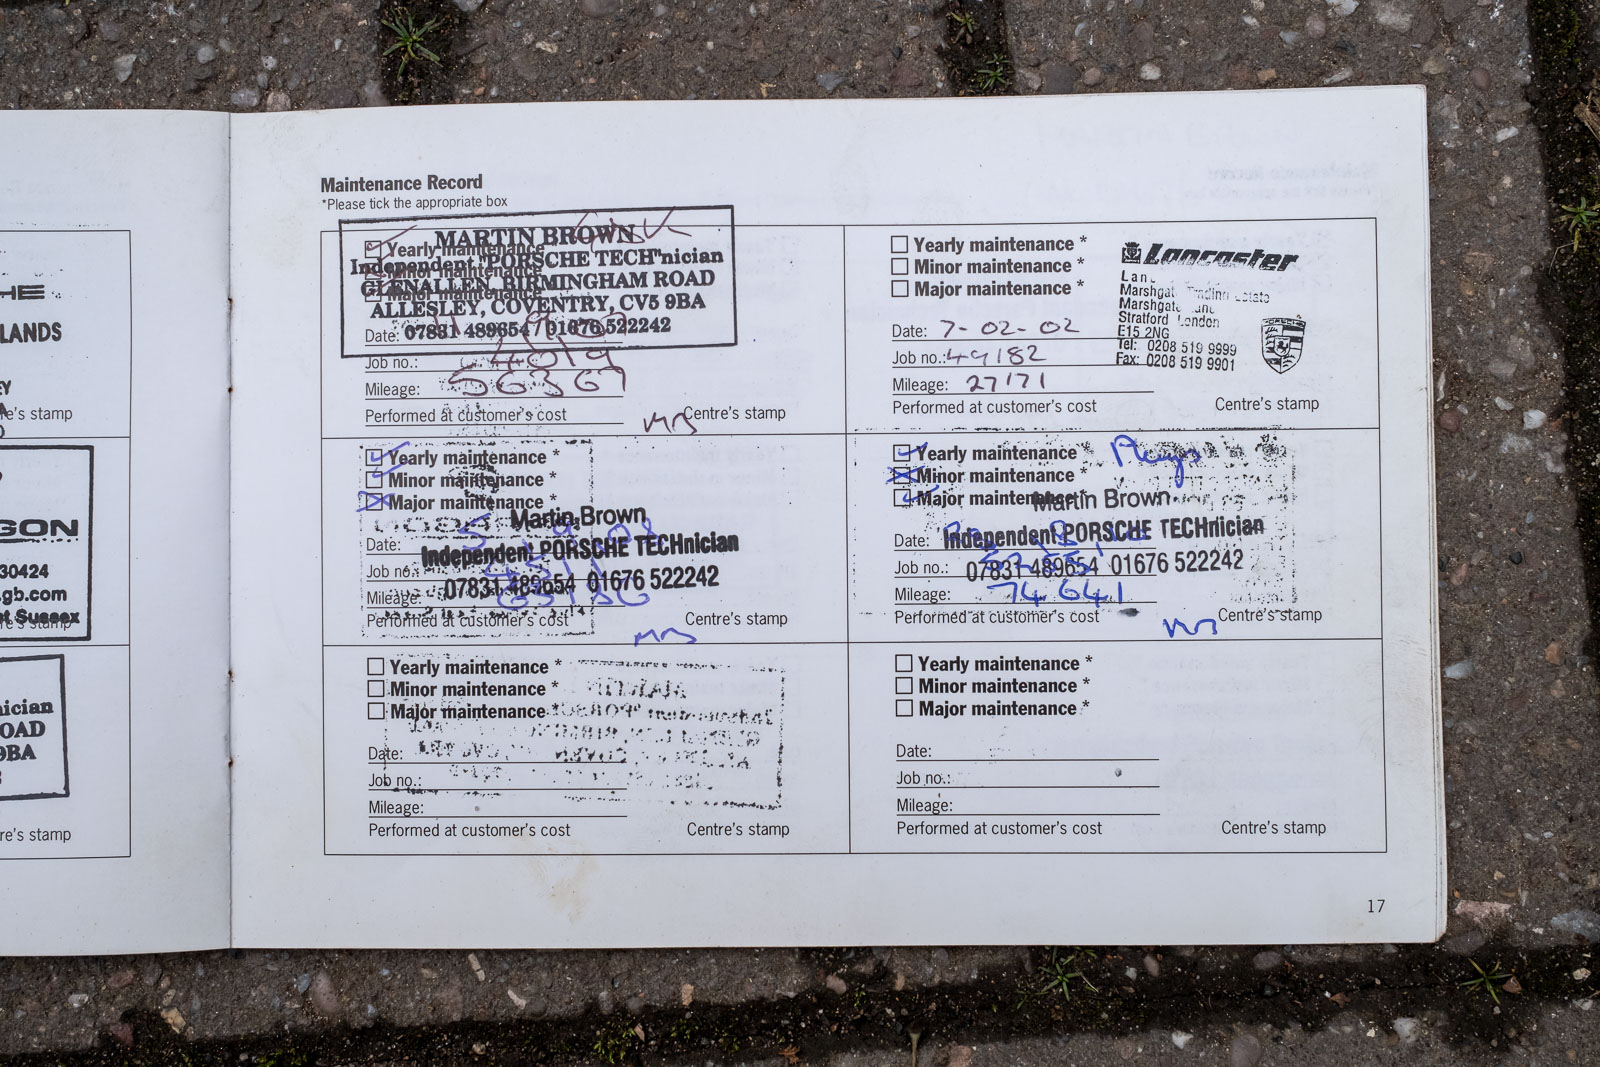 LANDS
re's stamp
GON
30424
.gb.com
st Sussex
re's stamp
nician
OAD
9BA
re's stamp
Maintenance Record
*Please tick the appropriate box
Yearly maintenance
Minor maintenance
Major maintenance
MARTIN BROWN
Independent "PORSCHE TECH"nician
GLENALLEN, BIRMINGHAM ROAD
ALLESLEY, COVENTRY, CV5 9BA
07831 489654 / 01676 522242
Date:
Job no.: 4019
Mileage: 56367
Performed at customer's cost
Centre's stamp
Yearly maintenance *
Minor maintenance *
Major maintenance *
Lancaster
Marshgate
Marshgate Lane
Stratford London
E15 2NG
Tel: 0208 519 9999
Fax: 0208 519 9901
Date: 7-02-02
Job no.: 49182
Mileage: 27171
Performed at customer's cost
Centre's stamp
Yearly maintenance *
Minor maintenance *
Major maintenance *
Martin Brown
Independent PORSCHE TECHnician
07831 489654 01676 522242
Date:
Job no.:
Mileage:
Performed at customer's cost
Centre's stamp
Yearly maintenance *
Minor maintenance *
Major maintenance *
Martin Brown
Independent PORSCHE TECHnician
07831 489654 01676 522242
Date:
Job no.:
Mileage: 74641
Performed at customer's cost
Centre's stamp
Yearly maintenance *
Minor maintenance *
Major maintenance *
Date:
Job no.:
Mileage:
Performed at customer's cost
Centre's stamp
Yearly maintenance *
Minor maintenance *
Major maintenance *
Date:
Job no.:
Mileage:
Performed at customer's cost
Centre's stamp
17